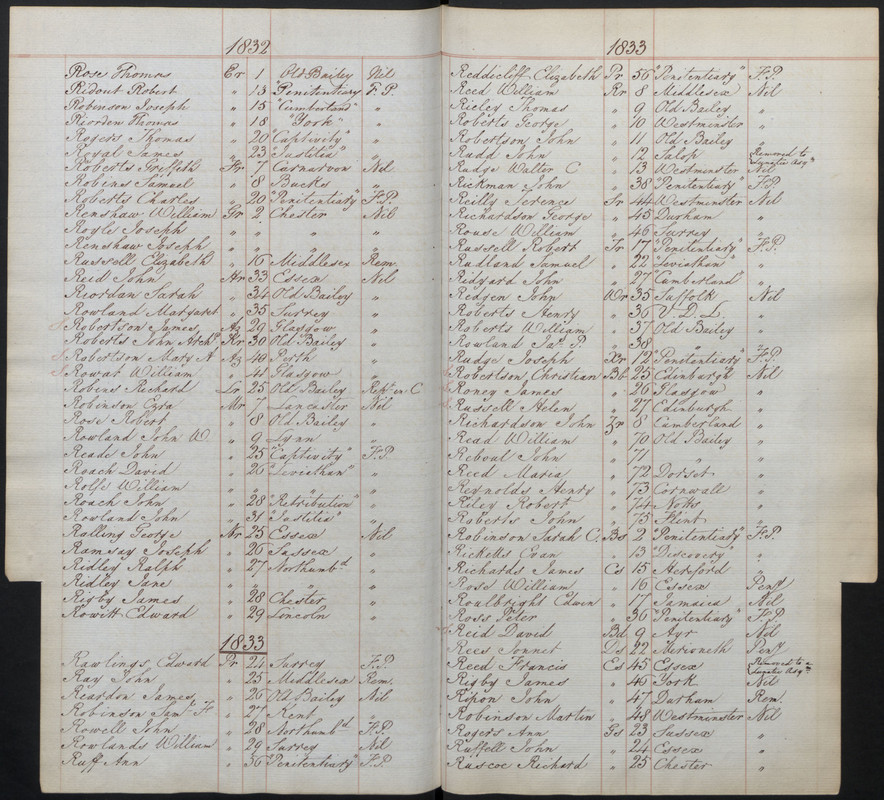 1832
Rose Thomas Er 1 Old Bailey Nil
Ridout Robert " 13 "Penitentiary" F.P.
Robinson Joseph " 15 "Cumberland" "
Riorden Thomas " 18 "York" "
Rogers Thomas " 20 "Captivity" "
Royal James " 23 "Justitia" "
Roberts Griffith Fr 7 Carnarvon Nil
Robins Samuel " 8 Bucks "
Roberts Charles " 20 "Penitentiary" F.P.
Renshaw William Gr 2 Chester Nil
Royle Joseph " " " "
Renshaw Joseph " " " "
Russell Elizabeth " 16 Middlesex Rem.
Reid John Hr 33 Essex Nil
Riordan Sarah " 34 Old Bailey "
Rowland Margaret " 35 Surrey "
Robertson James Az 29 Glasgow "
Roberts John Archd Kr 30 Old Bailey "
Robertson Mary A Az 40 Perth "
Rowat William " 41 Glasgow "
Robins Richard Lr 25 Old Bailey
Robinson Ezra Mr 7 Lancaster Nil
Rose Robert " 8 Old Bailey "
Rowland John W. " 9 Lynn "
Reade John " 25 "Captivity" F.P.
Roach David " 26 "Leviathan" "
Rolfe William " " " "
Roach John " 28 "Retribution" "
Rowland John " 31 "Justitia" "
Ralling George Nr 25 Essex Nil
Ramsay Joseph " 26 Sussex "
Ridley Ralph " 27 Northumbd "
Ridley Jane " " " "
Rigby James " 28 Chester "
Rowitt Edward " 29 Lincoln "
1833
Rawlings Edward Pr 24 Surrey F.P.
Ray John " 25 Middlesex Rem.
Reardon James " 26 Old Bailey Nil
Robinson Saml H " 27 Kent "
Rowell John " 28 Northumbd F.P.
Rowlands William " 29 Surrey Nil
Ruff Ann " 36 "Penitentiary" F.P.
1833
Reddicliff Elizabeth Pr 56 "Penitentiary" F.P.
Reed William Rr 8 Middlesex Nil
Rieley Thomas " 9 Old Bailey "
Roberts George " 10 Westminster "
Robertson John " 11 Old Bailey "
Rudd John " 12 Salop Removed to Lunatic Asym
Rudge Walter C " 13 Westminster Nil
Rickman John " 38 "Penitentiary" F.P.
Reilly Terence Sr 44 Westminster Nil
Richardson George " 45 Durham "
Rouse William " 46 Surrey "
Russell Robert Tr 17 "Penitentiary" F.P.
Rudland Samuel " 22 "Leviathan" "
Ridyard John " 27 "Cumberland" "
Redgen John Wr 35 Suffolk Nil
Roberts Henry " 36 V.D.L. "
Roberts William " 37 Old Bailey "
Rowland Jas P. " 38 " "
Rudge Joseph Xr 12 "Penitentiary" F.P.
Robertson Christian Bb 25 Edinburgh Nil
Roney James " 26 Glasgow "
Russell Helen " 27 Edinburgh "
Richardson John Zr 8 Cumberland "
Read William " 70 Old Bailey "
Reboul John " 71 " "
Reed Maria " 72 Dorset "
Reynolds Henry " 73 Cornwall "
Riley Robert " 74 Notts "
Roberts John " 75 Flint "
Robinson Sarah C. Bs 2 "Penitentiary" F.P.
Ricketts Evan " 13 "Discovery" "
Richards James Cs 15 Hereford "
Rose William " 16 Essex Peny
Roulbright Edwin " 17 Jamaica Nil
Ross Peter " 36 "Penitentiary" F.P.
Reid David Bd 9 Ayr Nil
Rees Sonnet Ds 22 Merioneth Peny
Reed Francis Es 45 Essex Removed to a Lunatic Asym
Rigby James " 46 York Nil
Ripon John " 47 Durham Rem.
Robinson Martin " 48 Westminster Nil
Rogers Ann Gs 23 Sussex "
Ruffell John " 24 Essex "
Ruscoe Richard " 25 Chester "